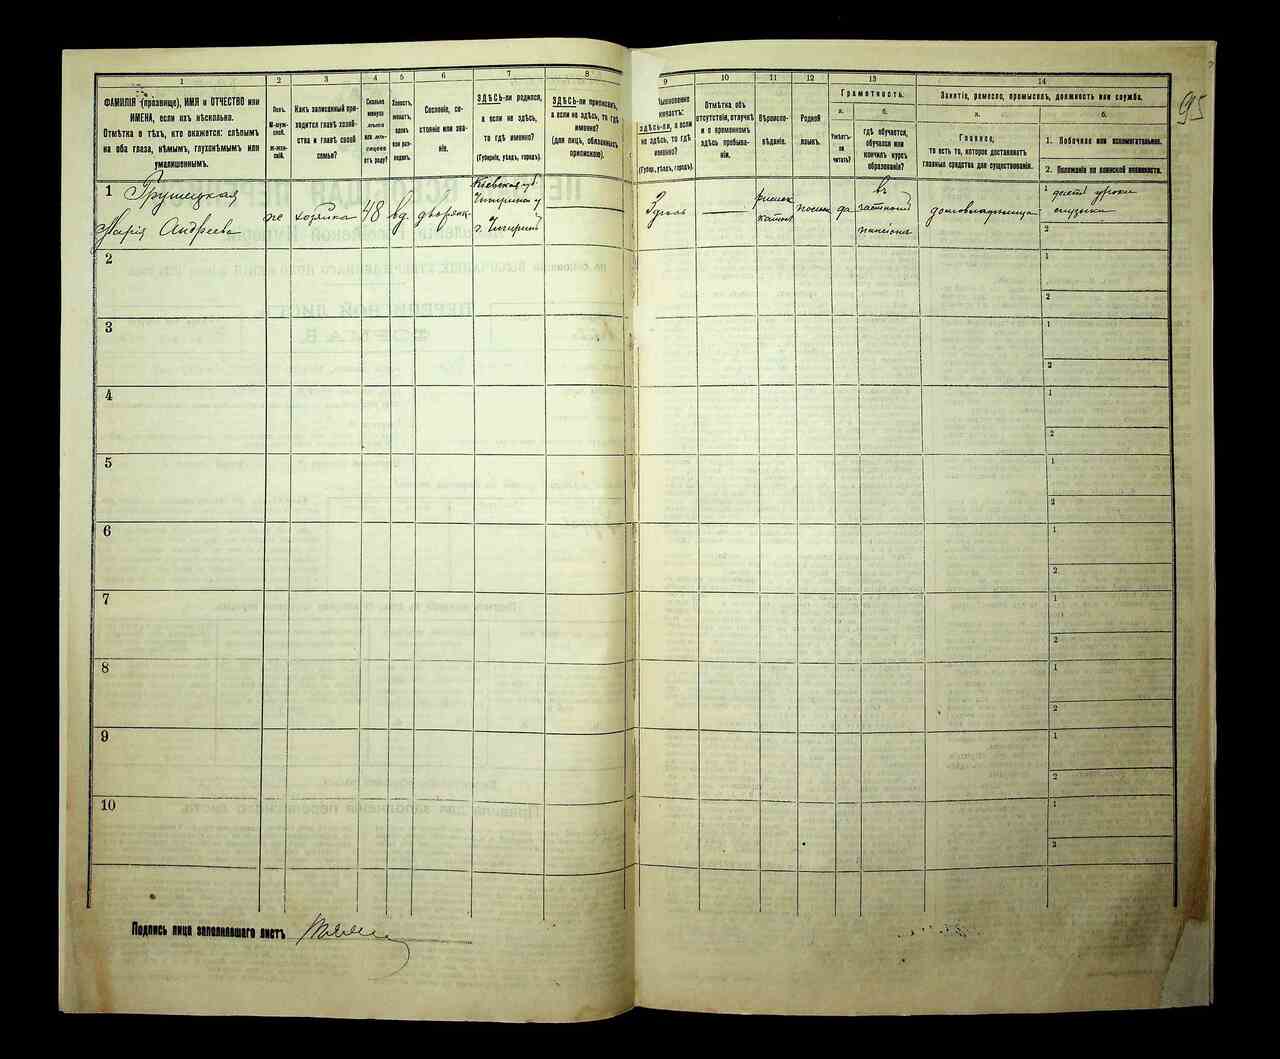 1
2
3
4
5
6
7
8
ФАМИЛІЯ (прозвище), ИМЯ и ОТЧЕСТВО или
ИМЕНА, если ихъ нѣсколько.
Отмѣтка о тѣхъ, кто окажется: слѣпымъ
на оба глаза, нѣмымъ, глухонѣмымъ или
умалишеннымъ.
Полъ.
М-муж-
ской.
Ж-жен-
скій.
Какъ записанный при-
ходится главѣ хозяй-
ства и главѣ своей
семьи?
Сколько
минуло
лѣтъ
или мѣ-
сяцевъ
отъ роду?
Холостъ,
женатъ,
вдовъ
или раз-
веденъ.
Сословіе, со-
стояніе или зва-
ніе.
ЗДѢСЬ-ли родился,
а если не здѣсь,
то гдѣ именно?
(Губернія, уѣздъ, городъ).
ЗДѢСЬ-ли приписанъ,
а если не здѣсь, то гдѣ
именно?
(для лицъ, обязанныхъ
припискою).
1 Грушецкая
Марія Андреева
же
хозяйка
48
вд.
дворянк.
Кіевская губ.
Чигиринъ у
г. Чигиринъ
2
3
4
5
6
7
8
9
10
Подпись лица заполнявшаго листъ
9
10
11
12
13
14
95
живетъ
ЗДѢСЬ-ли, а если
не здѣсь, то гдѣ
именно?
(Губер., уѣздъ, городъ).
Отмѣтка объ
отсутствіи, отлучкѣ
и о временномъ
здѣсь пребыва-
ніи.
Вѣроиспо-
вѣданіе.
Родной
языкъ.
Грамотность.
а.
б.
Умѣетъ-
ли
читать?
гдѣ обучается,
обучался или
кончилъ курсъ
образованія?
Занятіе, ремесло, промыселъ, должность или служба.
а.
б.
Главное,
то есть то, которое доставляетъ
главныя средства для существованія.
1. Побочное или вспомогательное.
2. Положеніе по воинской повинности.
Здѣсь
римск
катол
польск
да
въ
частномъ
пансіонѣ
домовладѣлица
1 даетъ уроки
музыки
2
1
2
1
2
1
2
1
2
1
2
1
2
1
2
1
2
1
2